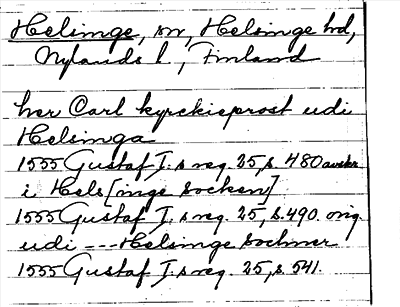 Helsinge, sn, Helsinge hd,
Nylands l, Finland
her Carl kyrckieprost udi
Helsinga
1555 Gustaf I:s reg. 25, s. 480 avskr
i Hels[inge socken]
1555 Gustaf I:s reg. 25, s. 490. orig
udi --- Helsinge sochnner
1555 Gustaf I:s reg. 25, s. 541.